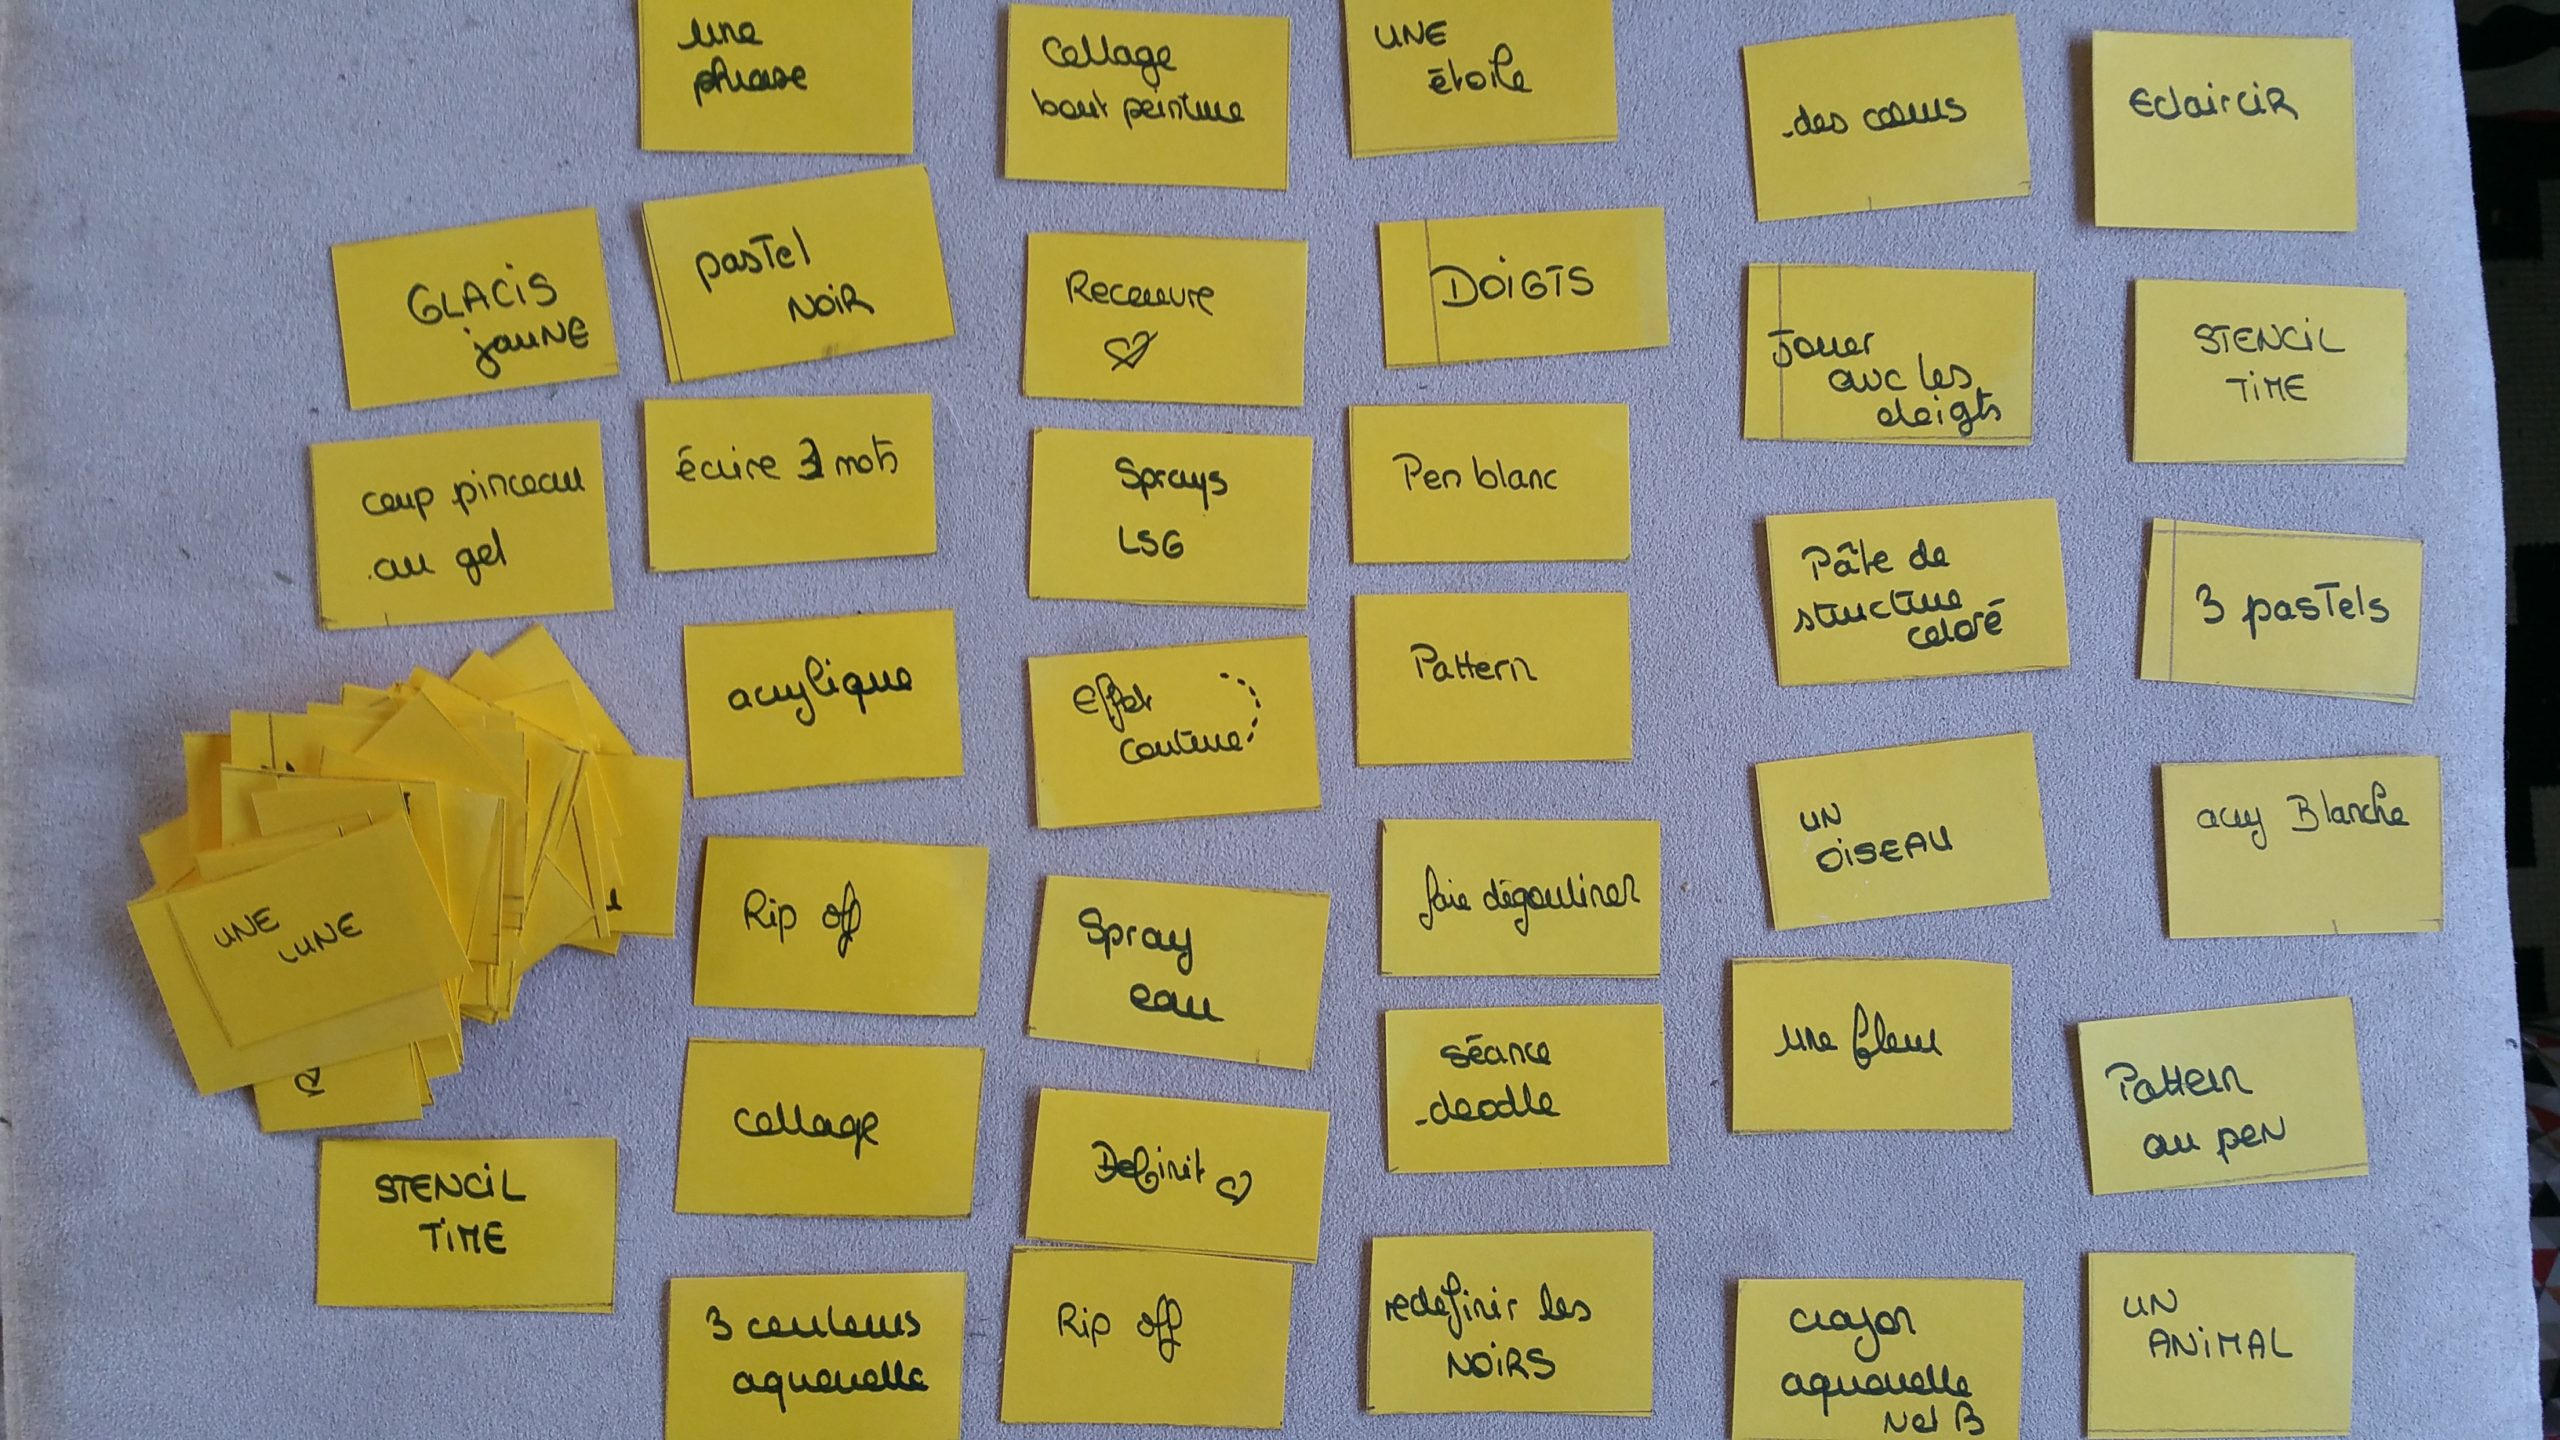 une
phrase
Collage
bout peinture
UNE
étoile
des cœurs
Eclaircir
GLACIS
jaune
pastel
NOIR
Recouvre
DOIGTS
Jouer
avc les
doigts
STENCIL
TIME
coup pinceau
au gel
écrire 3 mots
Sprays
LSG
Pen blanc
Pâte de
structure
coloré
3 pastels
acrylique
Effet
couture
Pattern
UN
OISEAU
acry Blanche
UNE
LUNE
Rip off
Spray
eau
faie dégouliner
une fleur
Pattern
au pen
STENCIL
TIME
collage
Definit
séance
doodle
3 couleurs
aquarelle
Rip off
redefinir les
NOIRS
crayon
aquarelle
N et B
UN
ANIMAL